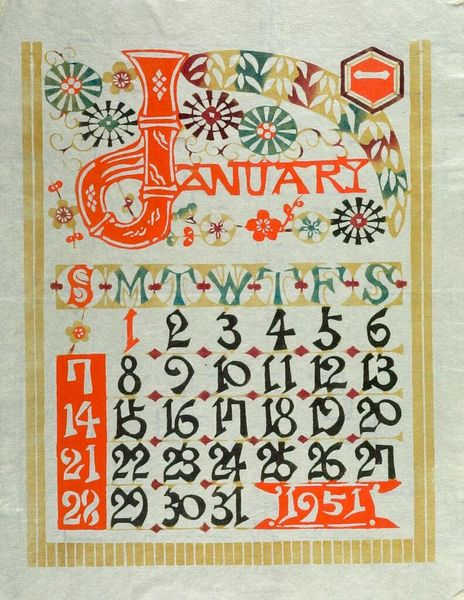 一
JANUARY
S M T W T F S
1 2 3 4 5 6
7 8 9 10 11 12 13
14 15 16 17 18 19 20
21 22 23 24 25 26 27
28 29 30 31 1951